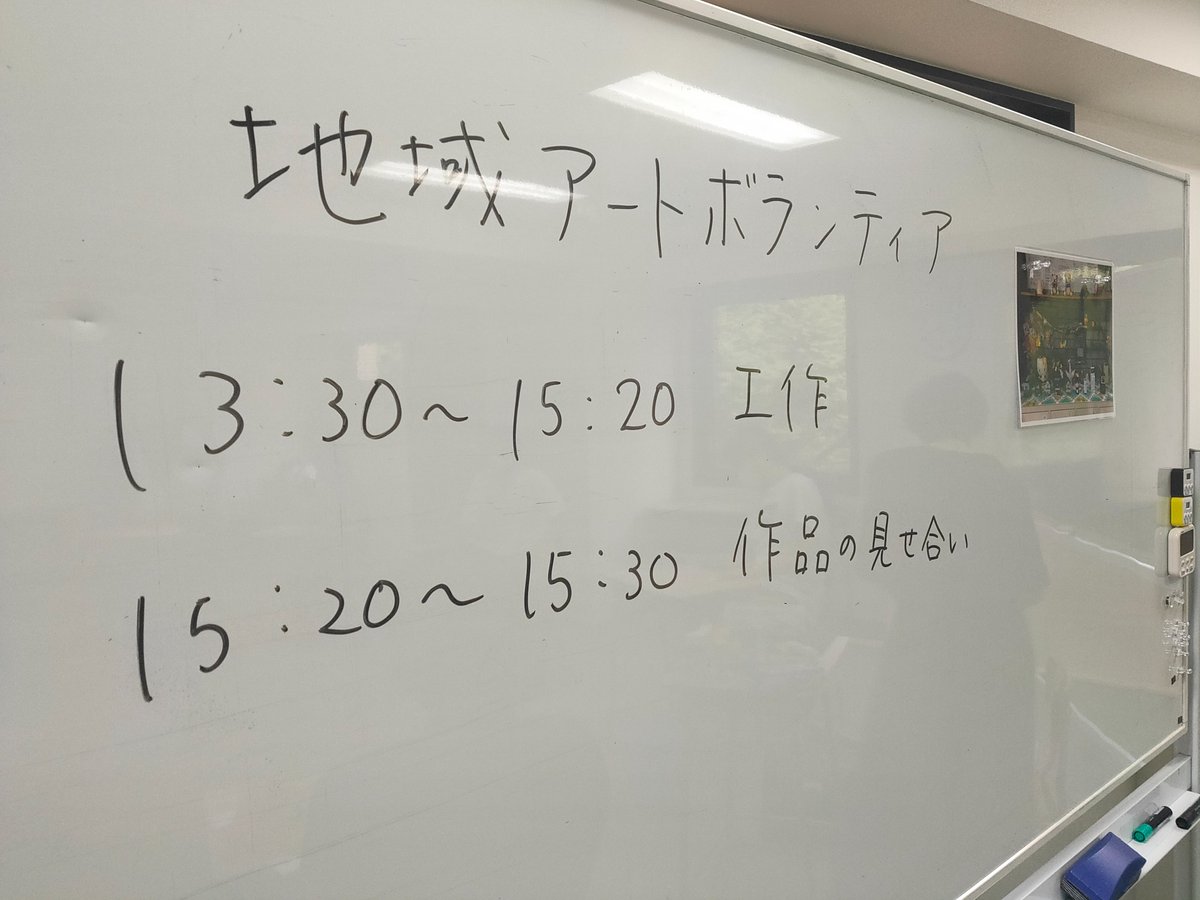 地域アートボランティア
13:30～15:20 工作
15:20～15:30 作品の見せ合い